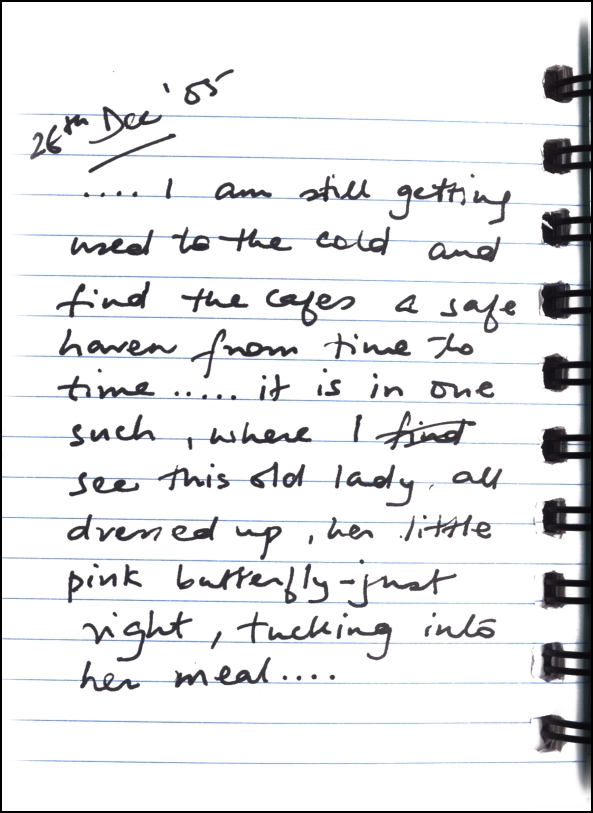 26th Dec '05
.... I am still getting
used to the cold and
find the cafes a safe
haven from time to
time ..... it is in one
such, where I find
see this old lady, all
dressed up, her little
pink butterfly-just
right, tucking into
her meal....